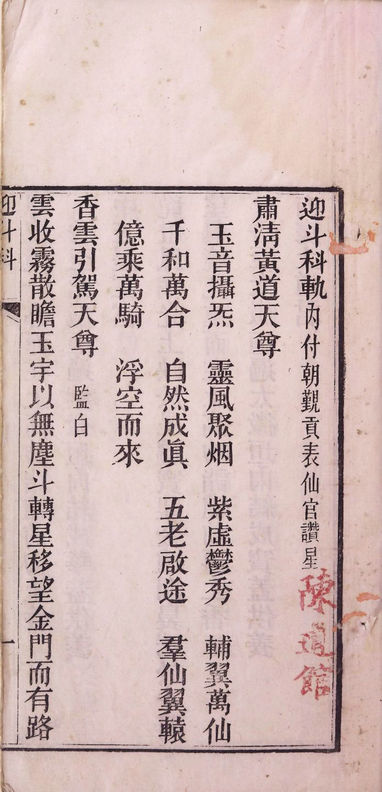 迎斗科軌內付朝覲貢表仙官讚星
陳道館
肅淸黃道天尊
玉音攝炁 靈風聚烟 紫虛鬱秀 輔翼萬仙
千和萬合 自然成眞 五老啟途 羣仙翼轅
億乘萬騎 浮空而來
香雲引駕天尊 監白
雲收霧散瞻玉宇以無塵斗轉星移望金門而有路
迎斗科 一